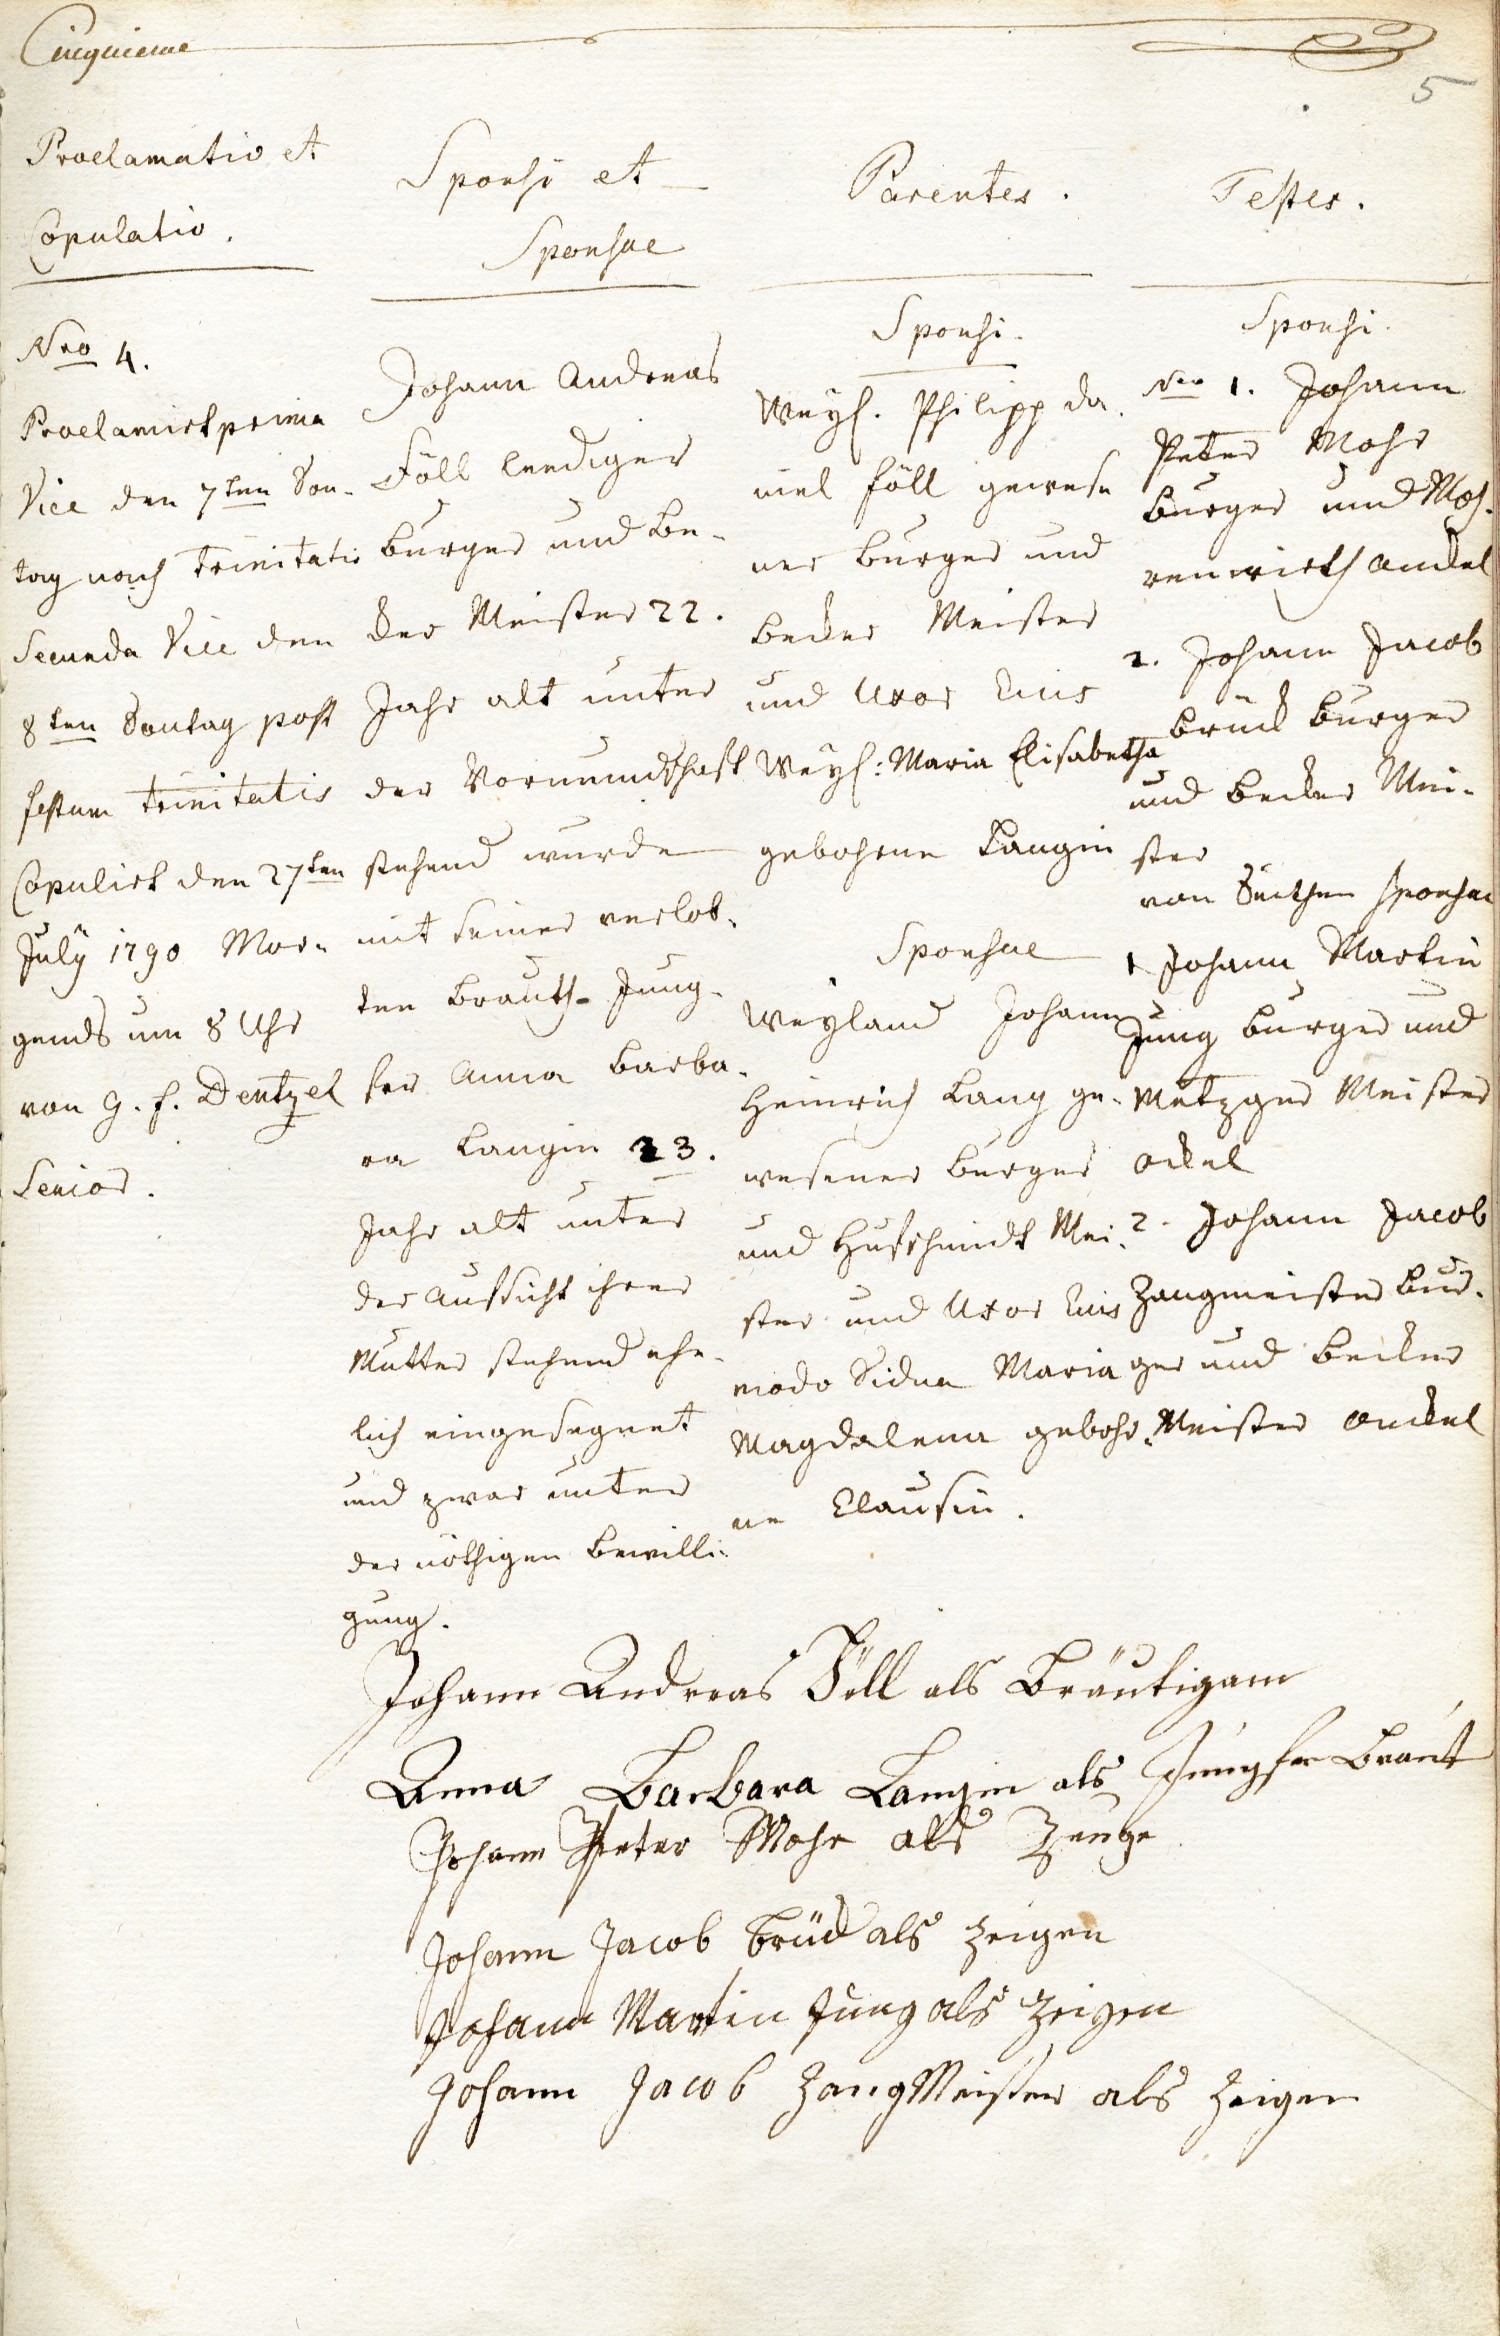 Cinquieme
5
Proclamatio et
Copulatio.
Nro 4.
Proclamirt prima
Vice den 7ten Son-
tag nach trinitatis
Secunda Vice den
8ten Sontag post
festum trinitatis
Copulirt den 27ten
July 1790 Mor-
gends um 8 Uhr
von G. F. Dentzel
Senior.
Sponsi et
Sponsae
Johann Andreas
Föll leediger
burger und be-
cker Meister 22.
Jahr alt unter
der Vormundschaft
stehend wurde
mit seiner verlob-
ten brauth Jung-
fer Anna barba-
ra Langin 23.
Jahr alt unter
der Aufsicht ihrer
Mutter stehend ehe-
lich eingesegnet
und zwar unter
der nöthigen bewilli-
gung.
Parentes.
Sponsi.
Weyl. Philipp Da-
niel Föll gewese
ner burger und
becker Meister
und Uxor Eius
Weyl: Maria Elisabetha
gebohrne Langin
Sponsae
Weyland Johann
Heinrich Lang ge-
wesener burger
und Hufschmidt Mei-
ster und Uxor Eius
modo Vidua Maria
Magdalena gebohr-
ne Clausin.
Testes.
Sponsi.
Nro 1. Johann
Peter Mohr
burger und Moh-
renwirth
2. Johann Jacob
brück burger
und becker Mei-
ster
von Seithen Sponsae
1 Johann Martin
Jung burger und
Metzger Meister
2. Johann Jacob
Zangmeister bur-
ger und becker
Meister onckel
Johann Andreas Föll als Bräutigam
Anna Barbara Langin als Jungfer Braut
Johann Peter Mohr als Zeuge
Johann Jacob brück als zeigen
Johann Martin Jung als zeigen
Johann Jacob ZangMeister als zeigen